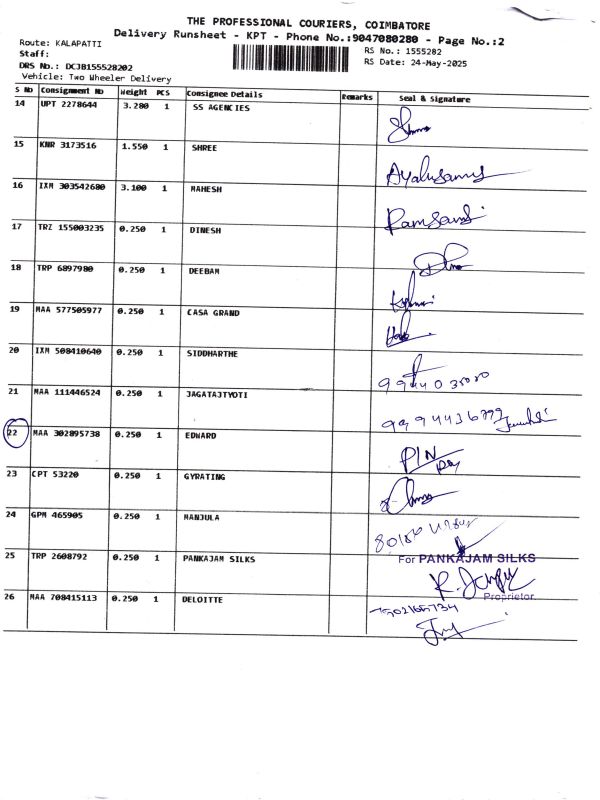 THE PROFESSIONAL COURIERS, COIMBATORE
Delivery Runsheet - KPT - Phone No.:9047080280 - Page No.:2
Route: KALAPATTI RS No.: 1555282
Staff: RS Date: 24-May-2025
DRS No.: DCJB155528202
Vehicle: Two Wheeler Delivery
S No Consignment No Weight PCS Consignee Details Remarks Seal & Signature
14 UPT 2278644 3.280 1 SS AGENCIES
15 KNR 3173516 1.550 1 SHREE
16 IXM 303542680 3.100 1 MAHESH
17 TRZ 155003235 0.250 1 DINESH
18 TRP 6897980 0.250 1 DEEBAM
19 MAA 577505977 0.250 1 CASA GRAND
20 IXM 508410640 0.250 1 SIDDHARTHE
21 MAA 111446524 0.250 1 JAGATAJTYOTI
22 MAA 302895738 0.250 1 EDWARD
PIN
23 CPT 53220 0.250 1 GYRATING
24 GPM 465905 0.250 1 MANJULA
25 TRP 2608792 0.250 1 PANKAJAM SILKS
For PANKAJAM SILKS
Proprietor.
26 MAA 708415113 0.250 1 DELOITTE